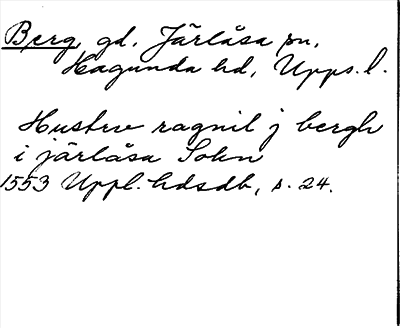 Berg gd, Järlåsa sn,
Hagunda hd, Upps. l.
Hustrv ragnil j bergh
i järlåsa Sokn
1553 Uppl. hdsdb, s. 24.